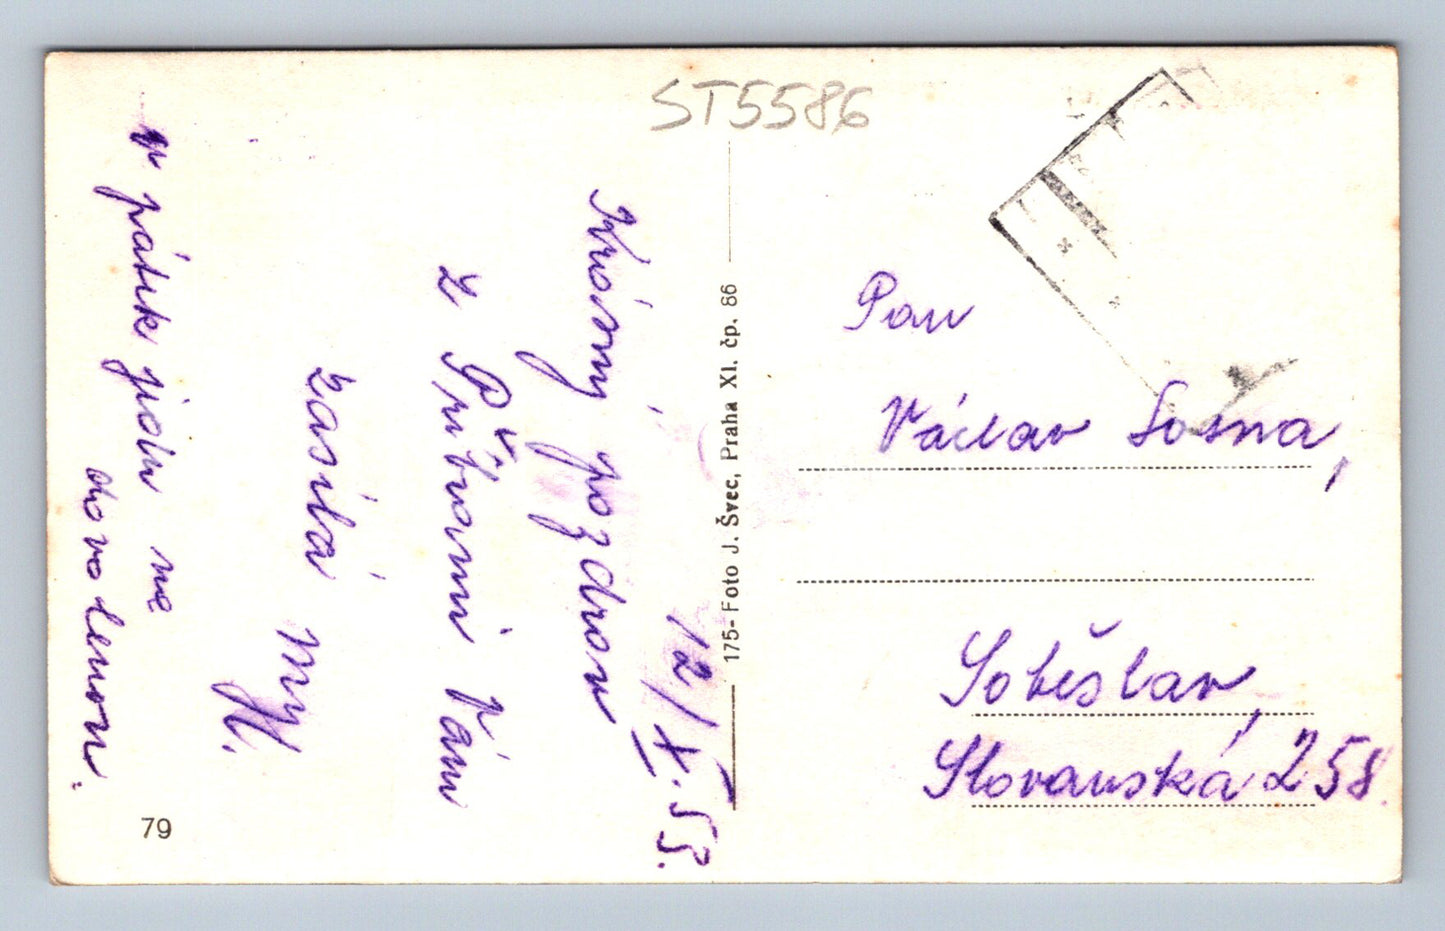 ST5586
12/X. 53.
Krásný pozdrav
z Příbrami Vám
zasílá
M.
V pátek jedu na
dovolenou.
79
175- Foto J. Švec, Praha XI. čp. 86
Pan
Václav Sosna,
Soběslav,
Slovanská 258.